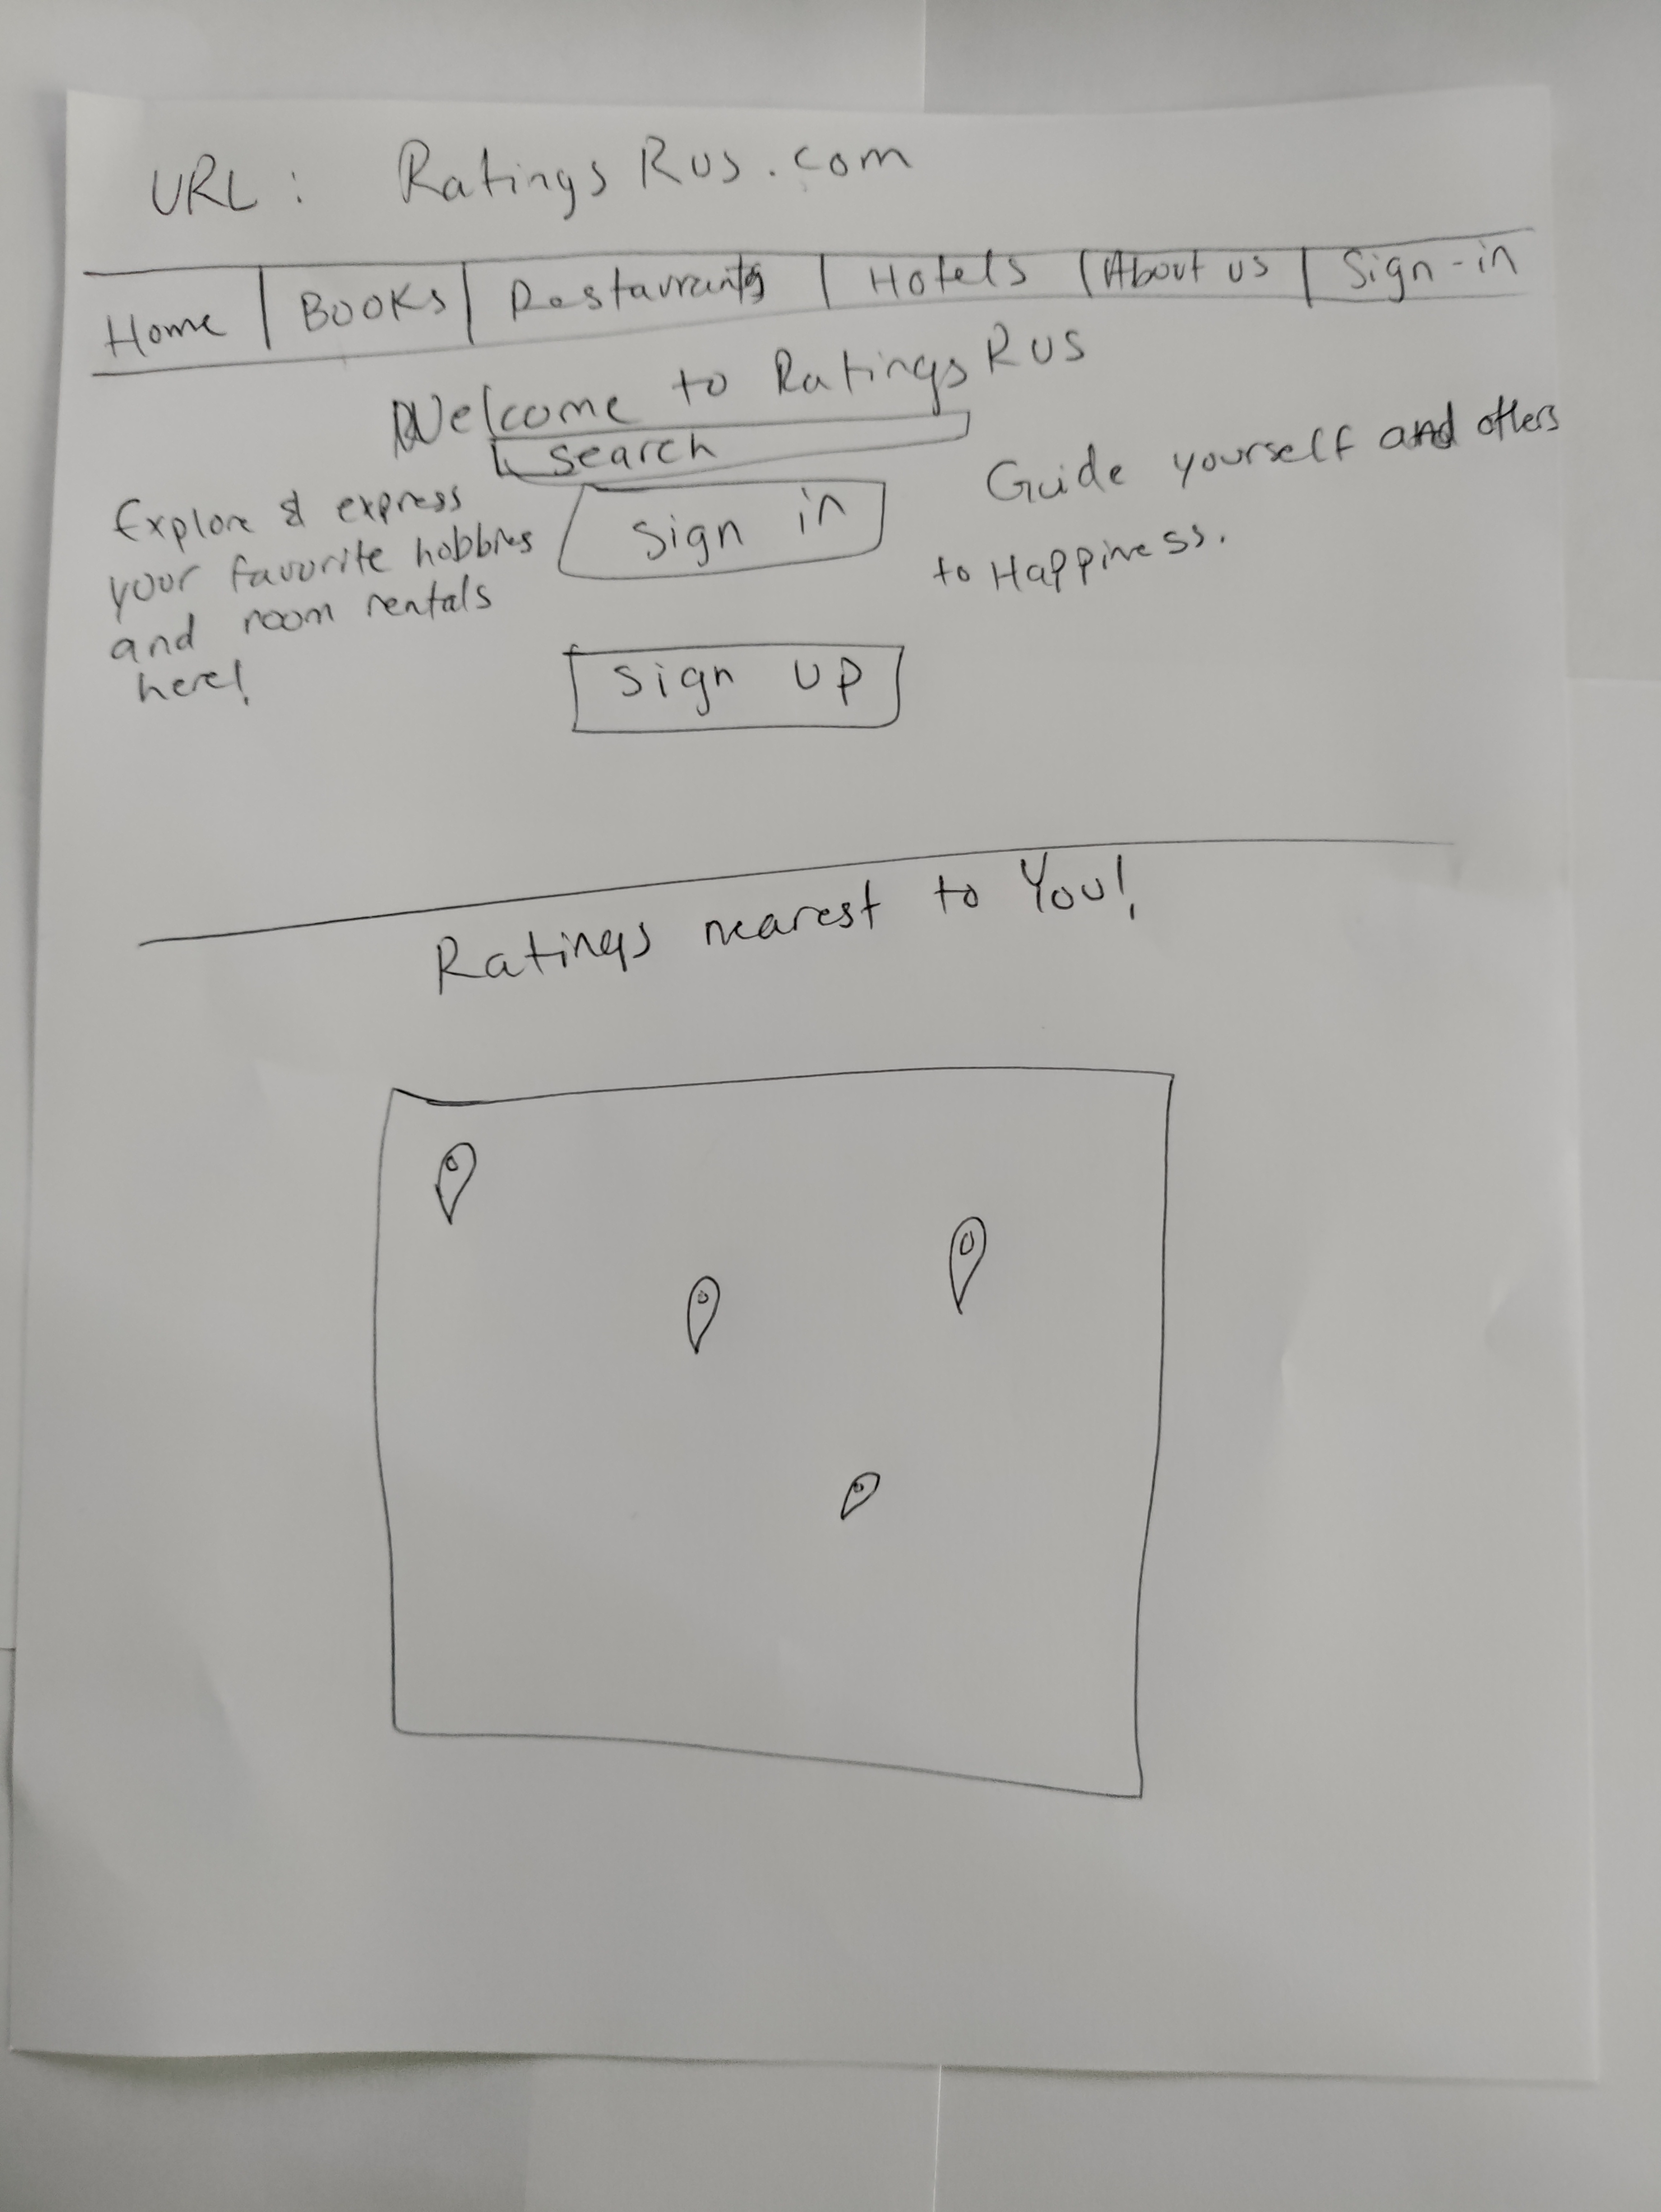 URL: RatingsRus.com
Home | Books | Restaurants | Hotels | About us | Sign-in
Welcome to RatingsRUS
search
Explore & express
your favorite hobbies
and room rentals
here!
Sign in
Sign up
Guide yourself and others
to Happiness.
Ratings nearest to You!